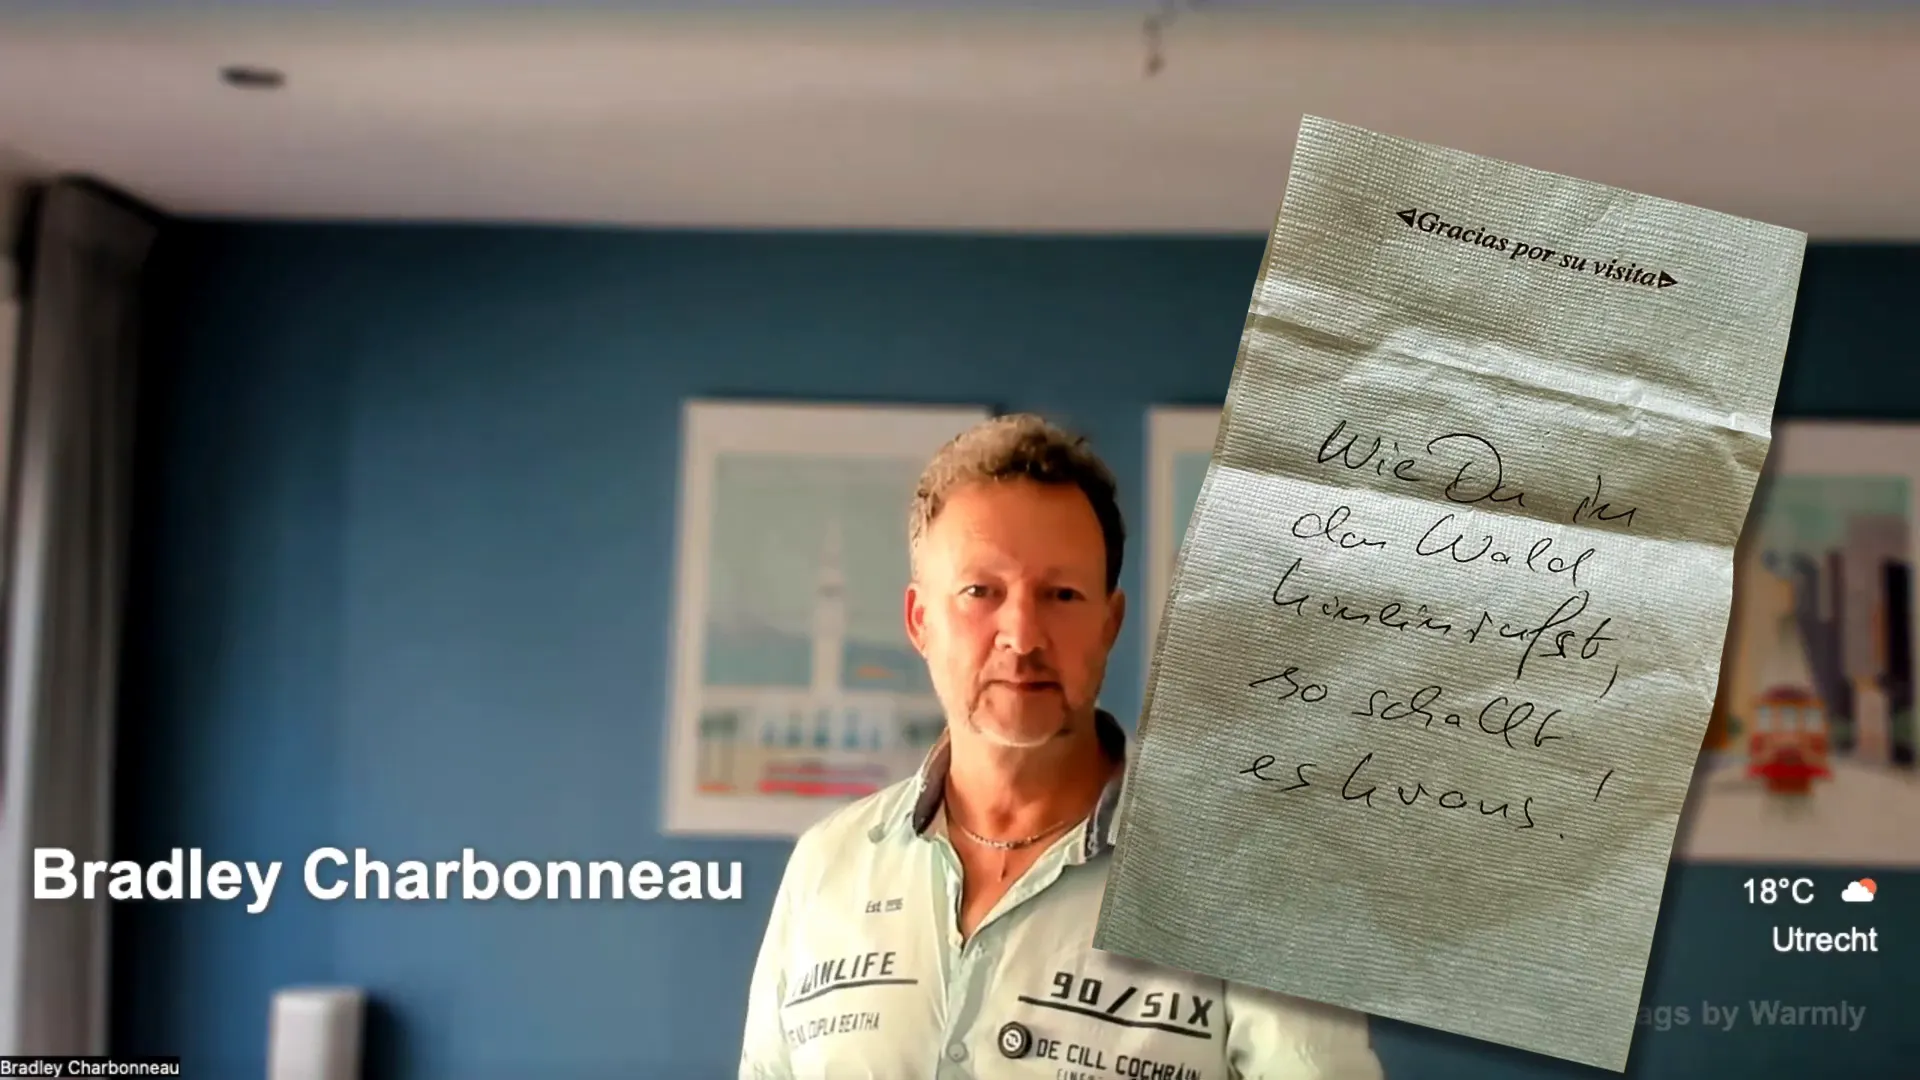 ◁Gracias por su visita▷
Wie Du in
den Wald
hineinrufst,
so schallt
es heraus!
Bradley Charbonneau
18°C
Utrecht
ags by Warmly
Est.
LANLIFE
CUPLA BEATHA
90/SIX
DE CILL COCHRÁIN
Bradley Charbonneau